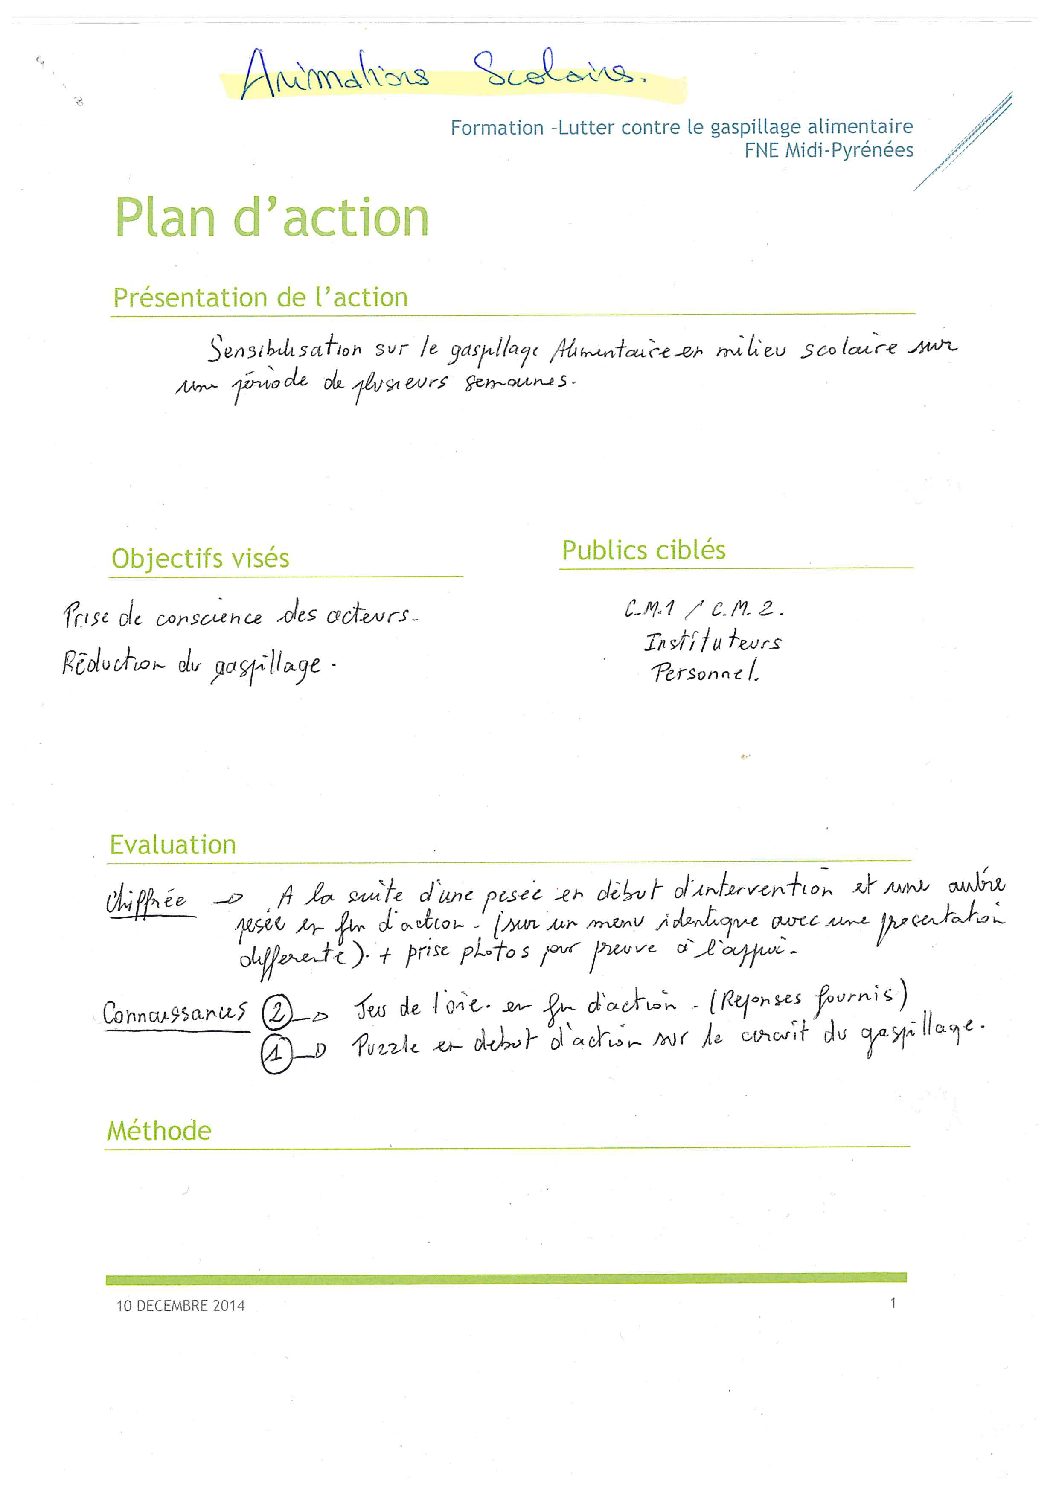 Animations Scolaires.
Formation -Lutter contre le gaspillage alimentaire
FNE Midi-Pyrénées
Plan d'action
Présentation de l'action
Sensibilisation sur le gaspillage Alimentaire en milieu scolaire sur
une période de plusieurs semaines.
Objectifs visés
Publics ciblés
Prise de conscience des acteurs.
Réduction du gaspillage.
C.M.1 / C.M.2.
Instituteurs
Personnel.
Evaluation
Chiffrée → A la suite d'une pesée en début d'intervention et une autre
pesée en fin d'action. (sur un menu identique avec une présentation
différente). + prise photos pour preuve à l'appui.
Connaissances ② → Jeu de l'oie. en fin d'action. (Réponses fournis)
① → Puzzle en début d'action sur le circuit du gaspillage.
Méthode
10 DECEMBRE 2014
1